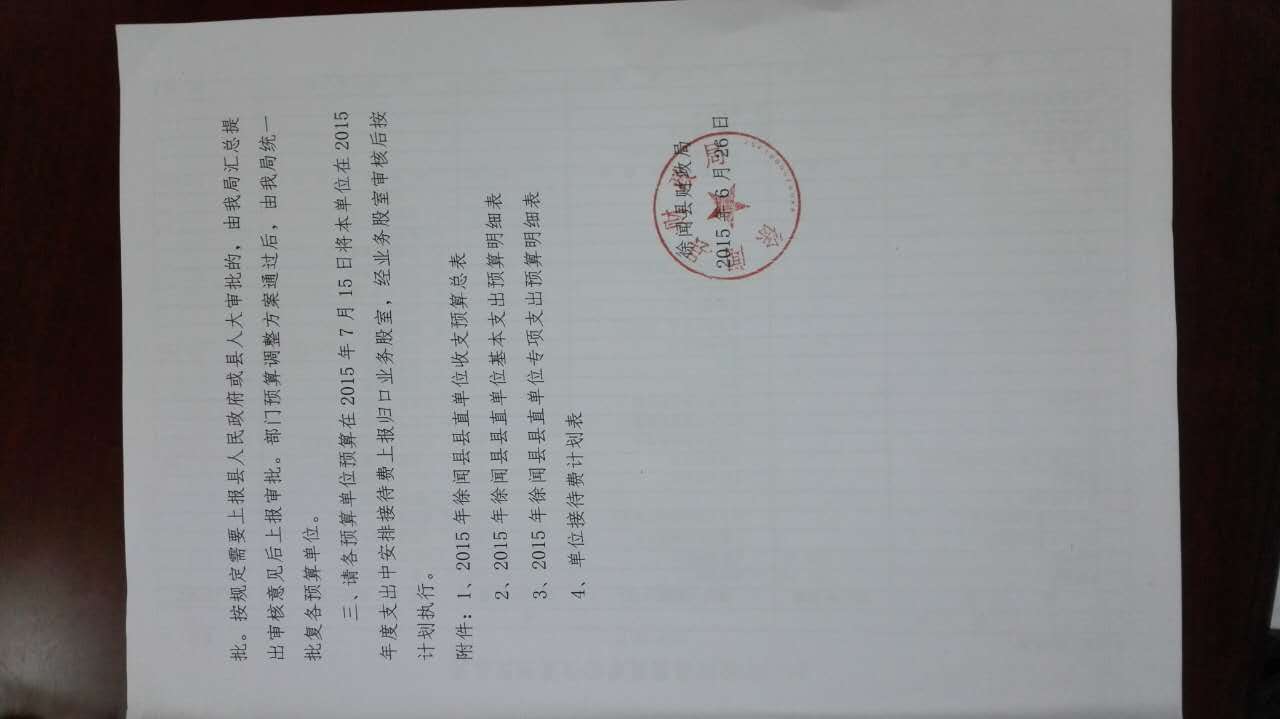 批。按规定需要上报县人民政府或县人大审批的，由我局汇总提
出审核意见后上报审批。部门预算调整方案通过后，由我局统一
批复各预算单位。
三、请各预算单位预算在 2015 年 7 月 15 日将本单位在 2015
年度支出中安排接待费上报归口业务股室，经业务股室审核后按
计划执行。
附件：1、2015 年徐闻县县直单位收支预算总表
2、2015 年徐闻县县直单位基本支出预算明细表
3、2015 年徐闻县县直单位专项支出预算明细表
4、单位接待费计划表
徐闻县财政局
2015 年 6 月 26 日